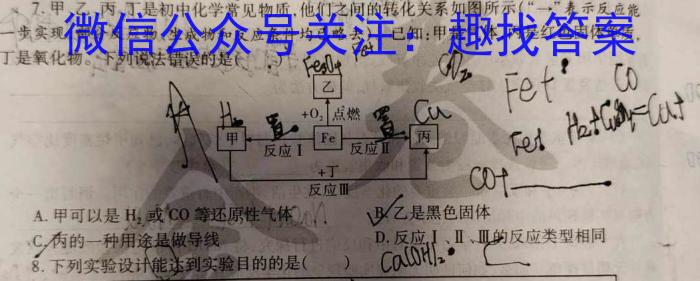 7. 甲、乙、丙、丁是初中化学常见物质,他们之间的转化关系如图所示(“→”表示反应能
一步实现,部分反应物、生成物和反应条件均已略去)。已知:甲是气体,丙是红色固体
微信公众号关注：趣找答案
丁是氧化物。下列说法错误的是( )
Fe₃O₄ Fe+
乙
CO₂
Fe+
CO
+O₂ 点燃
H₂
置
置
Cu
甲
Fe
丙
反应Ⅰ
反应Ⅱ
Fe+
+丁
反应Ⅲ
CO+
A. 甲可以是 H₂ 或 CO 等还原性气体
B. 乙是黑色固体
C. 丙的一种用途是做导线
D. 反应Ⅰ、Ⅱ、Ⅲ的反应类型相同
8. 下列实验设计能达到实验目的的是( )
Ca(OH)₂